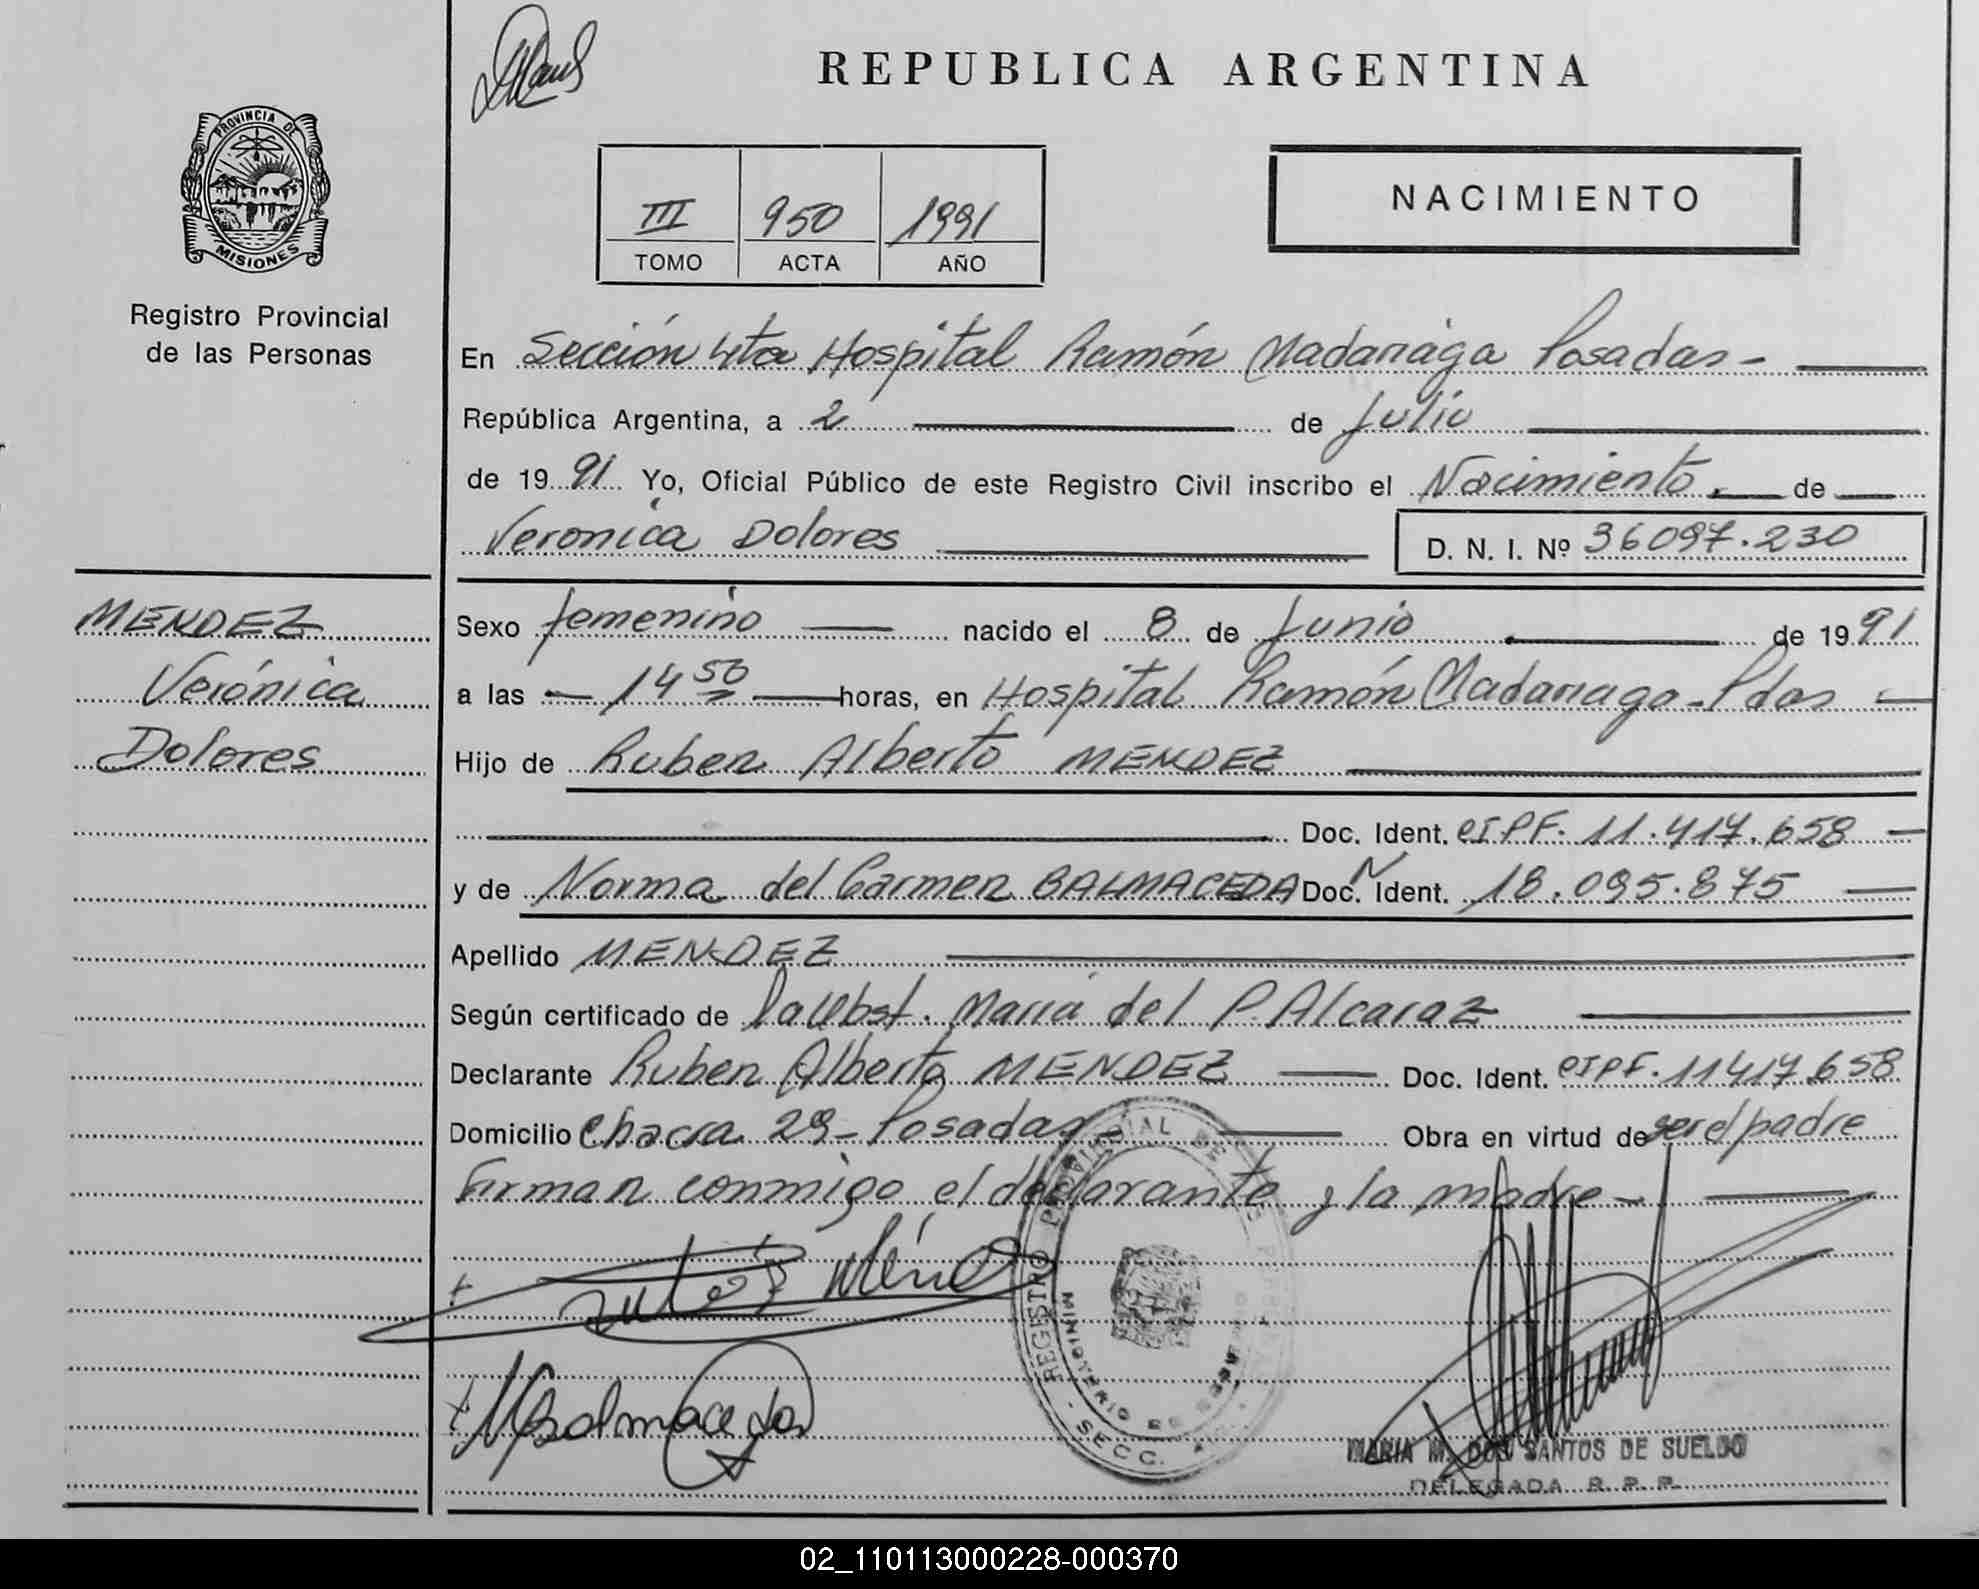 REPUBLICA ARGENTINA
PROVINCIA DE
MISIONES
Registro Provincial
de las Personas
III 950 1991
TOMO ACTA AÑO
NACIMIENTO
En Sección 4ta Hospital Ramón Madariaga Posadas -
República Argentina, a 2 de Julio
de 1991 Yo, Oficial Público de este Registro Civil inscribo el Nacimiento. de
Veronica Dolores D. N. I. Nº 36097.230
MENDEZ
Verónica
Dolores
Sexo femenino nacido el 8 de Junio de 1991
a las 14 50 horas, en Hospital Ramón Madariaga - Pdas
Hijo de Ruben Alberto MENDEZ
Doc. Ident. CIPF. 11.417.658
y de Norma del Carmen BALMACEDA Doc. N Ident. 18.095.875
Apellido MENDEZ
Según certificado de la Obst. Maria del P. Alcaraz
Declarante Ruben Alberto MENDEZ Doc. Ident. CIPF. 11417.658
Domicilio Chacra 29 - Posadas Obra en virtud de ser el padre
Firman conmigo el declarante y la madre -
REGISTRO PROVINCIAL DE
MINISTERIO DE GOBIERNO
SECC. 4
N Balmaceda
MARIA M. DOS SANTOS DE SUELDO
DELEGADA R. P. P.
02_110113000228-000370